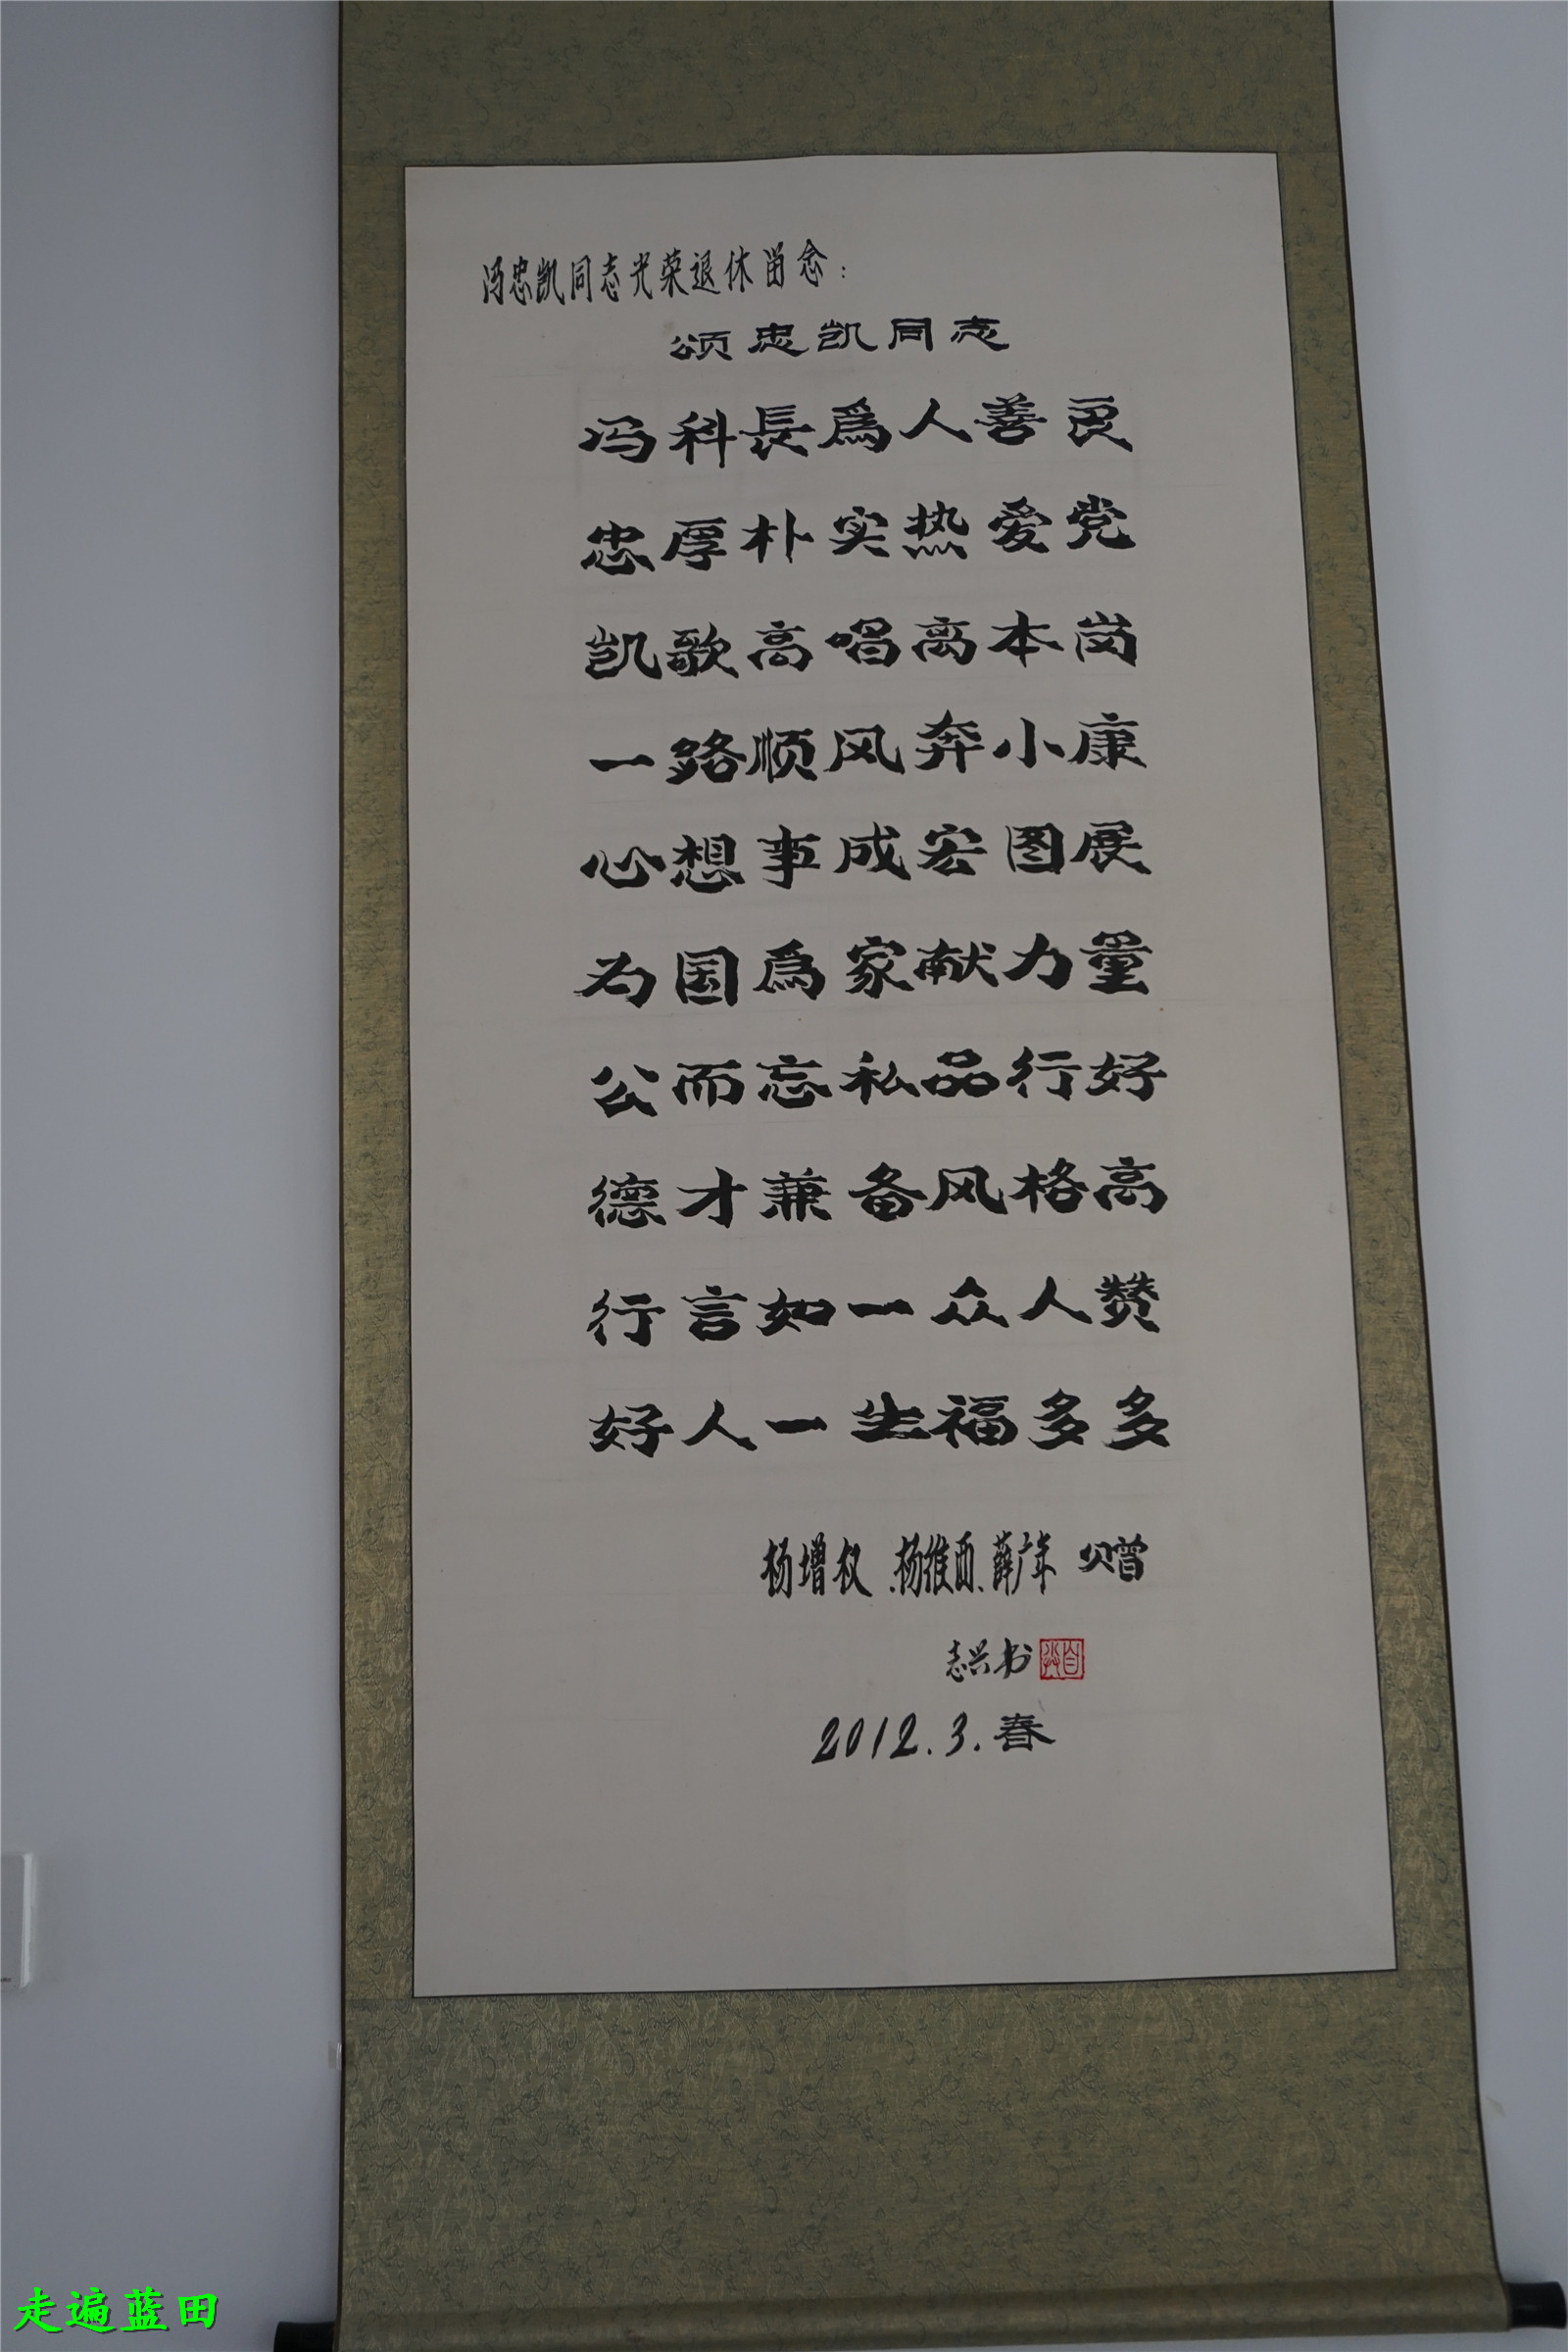 冯忠凯同志光荣退休留念：
颂忠凯同志
冯科長爲人善良
忠厚朴实热爱党
凯歌高唱离本岗
一路顺风奔小康
心想事成宏图展
为国爲家献力量
公而忘私品行好
德才兼备风格高
行言如一众人赞
好人一生福多多
杨增权、杨维西、薛广年 赠
志兴书
2012.3.春
走遍蓝田